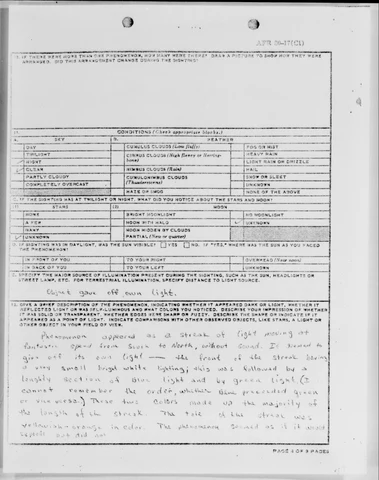 AFR 80-17(C1)
IF THERE WERE MORE THAN ONE PHENOMENON, HOW MANY WERE THERE? DRAW A PICTURE TO SHOW HOW THEY WERE
ARRANGED. DID THIS ARRANGEMENT CHANGE DURING THE SIGHTING?
CONDITIONS (Check appropriate blocks)
SKY WEATHER
DAY CUMULUS CLOUDS (Low fluffy) FOG OR MIST
TWILIGHT CIRRUS CLOUDS (High fleecy or Herring- HEAVY RAIN
NIGHT bone) LIGHT RAIN OR DRIZZLE
CLEAR NIMBUS CLOUDS (Rain) HAIL
PARTLY CLOUDY CUMULONIMBUS CLOUDS SNOW OR SLEET
COMPLETELY OVERCAST (Thunderstorms) UNKNOWN
HAZE OR SMOG NONE OF THE ABOVE
IF THE SIGHTING WAS AT TWILIGHT OR NIGHT, WHAT DID YOU NOTICE ABOUT THE STARS AND MOON?
STARS MOON
NONE BRIGHT MOONLIGHT NO MOONLIGHT
A FEW MOON WITH HALO UNKNOWN
MANY MOON HIDDEN BY CLOUDS
UNKNOWN PARTIAL (New or quarter)
IF SIGHTING WAS IN DAYLIGHT, WAS THE SUN VISIBLE? YES NO. IF "YES," WHERE WAS THE SUN AS YOU FACED
THE PHENOMENON?
IN FRONT OF YOU TO YOUR RIGHT OVERHEAD (Near noon)
IN BACK OF YOU TO YOUR LEFT UNKNOWN
SPECIFY THE MAJOR SOURCE OF ILLUMINATION PRESENT DURING THE SIGHTING, SUCH AS THE SUN, HEADLIGHTS OR
STREET LAMP, ETC. FOR TERRESTRIAL ILLUMINATION, SPECIFY DISTANCE TO LIGHT SOURCE.
Object gave off own light.
GIVE A BRIEF DESCRIPTION OF THE PHENOMENON, INDICATING WHETHER IT APPEARED DARK OR LIGHT, WHETHER IT
REFLECTED LIGHT OR WAS SELF-LUMINOUS AND WHAT COLORS YOU NOTICED. DESCRIBE YOUR IMPRESSION OF WHETHER
IT WAS SOLID OR TRANSPARENT, WHETHER EDGES WERE SHARP OR FUZZY. DESCRIBE THE SHAPE OR INDICATE IF IT
APPEARED AS A POINT OF LIGHT. INDICATE COMPARISONS WITH OTHER OBSERVED OBJECTS, LIKE STARS, LIGHT OR
OTHER OBJECT IN YOUR FIELD OF VIEW.
Phenomenon appeared as a streak of light moving at
fantastic speed from South to North, without sound. It seemed to
give off its own light — the front of the streak being
a very small bright white lighting; this was followed by a
lengthy section of blue light and by green light (I
cannot remember the order, whether blue preceeded green
or vice versa.) These two colors made up the majority of
the length of the streak. The tail of the streak was
yellowish-orange in color. The phenomenon seemed as if it would
PAGE 3 OF 9 PAGES